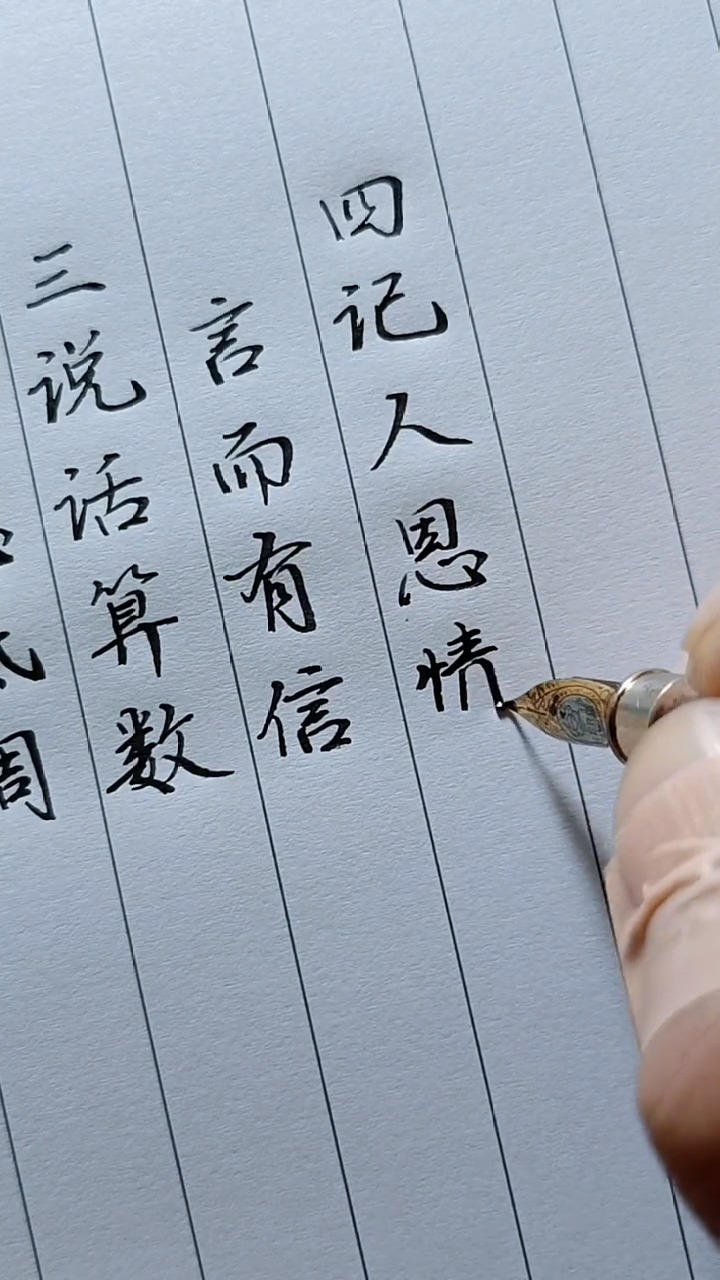 三说话算数
言而有信
四记人恩情